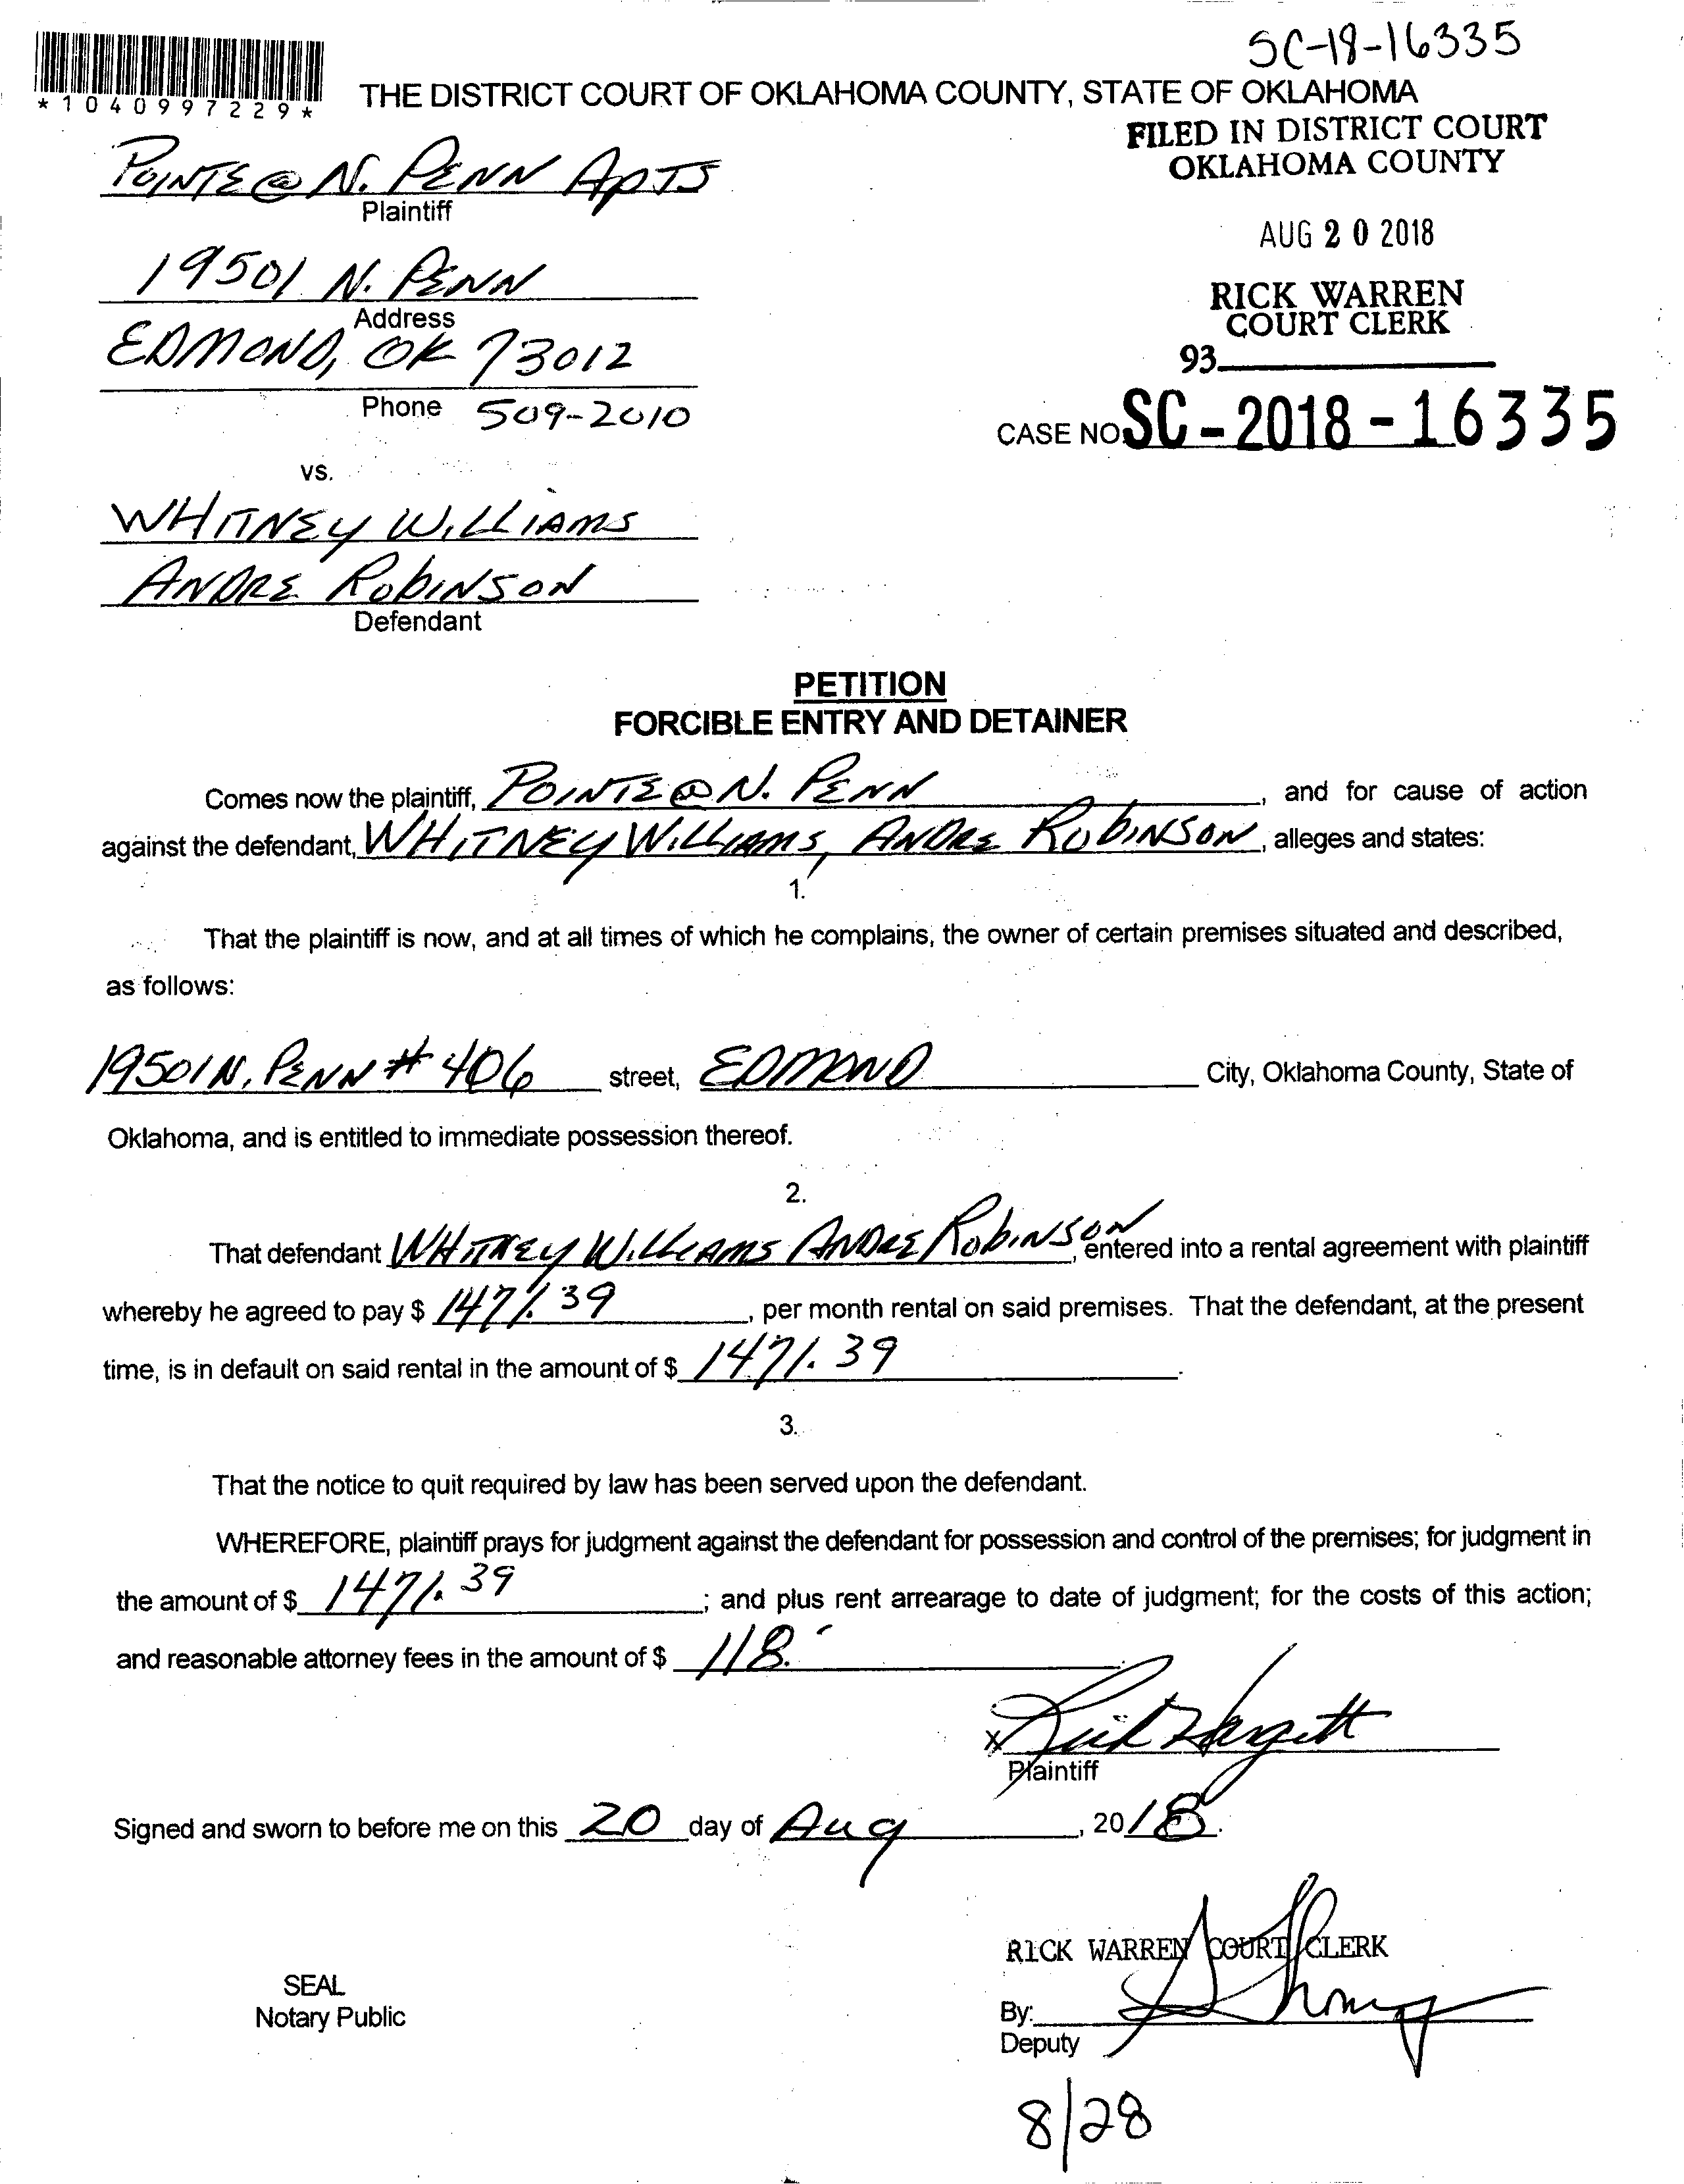 SC-18-16335
*1040997229*
THE DISTRICT COURT OF OKLAHOMA COUNTY, STATE OF OKLAHOMA
FILED IN DISTRICT COURT
OKLAHOMA COUNTY
POINTE @ N. PENN APTS
Plaintiff
AUG 20 2018
19501 N. PENN
Address
RICK WARREN
COURT CLERK
EDMOND, OK 73012
93
Phone 509-2010
CASE NO. SC-2018-16335
vs.
WHITNEY WILLIAMS
ANDRE ROBINSON
Defendant
PETITION
FORCIBLE ENTRY AND DETAINER
Comes now the plaintiff, POINTE @ N. PENN, and for cause of action
against the defendant, WHITNEY WILLIAMS, ANDRE ROBINSON, alleges and states:
1.
That the plaintiff is now, and at all times of which he complains, the owner of certain premises situated and described,
as follows:
19501 N. PENN # 406 street, EDMOND City, Oklahoma County, State of
Oklahoma, and is entitled to immediate possession thereof.
2.
That defendant WHITNEY WILLIAMS ANDRE ROBINSON, entered into a rental agreement with plaintiff
whereby he agreed to pay $ 1471.39, per month rental on said premises. That the defendant, at the present
time, is in default on said rental in the amount of $ 1471.39.
3.
That the notice to quit required by law has been served upon the defendant.
WHEREFORE, plaintiff prays for judgment against the defendant for possession and control of the premises; for judgment in
the amount of $ 1471.39; and plus rent arrearage to date of judgment; for the costs of this action;
and reasonable attorney fees in the amount of $ 118.
x
Plaintiff
Signed and sworn to before me on this 20 day of Aug, 2018.
RICK WARREN COURT CLERK
SEAL
Notary Public
By:
Deputy
8/28